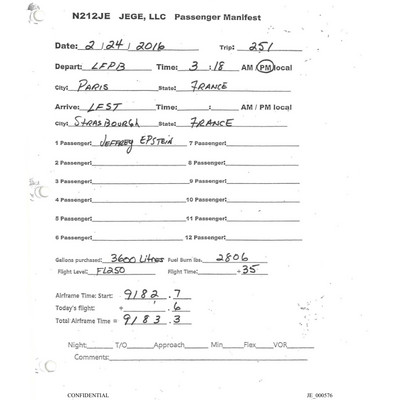 N212JE JEGE, LLC Passenger Manifest
Date: 2/24/2016 Trip: 251
Depart: LFPB Time: 3:18 AM / PM local
City: PARIS State: FRANCE
Arrive: LFST Time: : AM / PM local
City: STRASBOURGH State: FRANCE
1 Passenger: JEFFREY EPSTEIN 7 Passenger:
2 Passenger: 8 Passenger:
3 Passenger: 9 Passenger:
4 Passenger: 10 Passenger:
5 Passenger: 11 Passenger:
6 Passenger: 12 Passenger:
Gallons purchased: 3600 Litres Fuel Burn lbs. 2806
Flight Level: FL250 Flight Time: +35
Airframe Time: Start: 9182.7
Today's flight: + .6
Total Airframe Time = 9183.3
Night: T/O Approach Min Flex VOR
Comments:
CONFIDENTIAL JE_000576